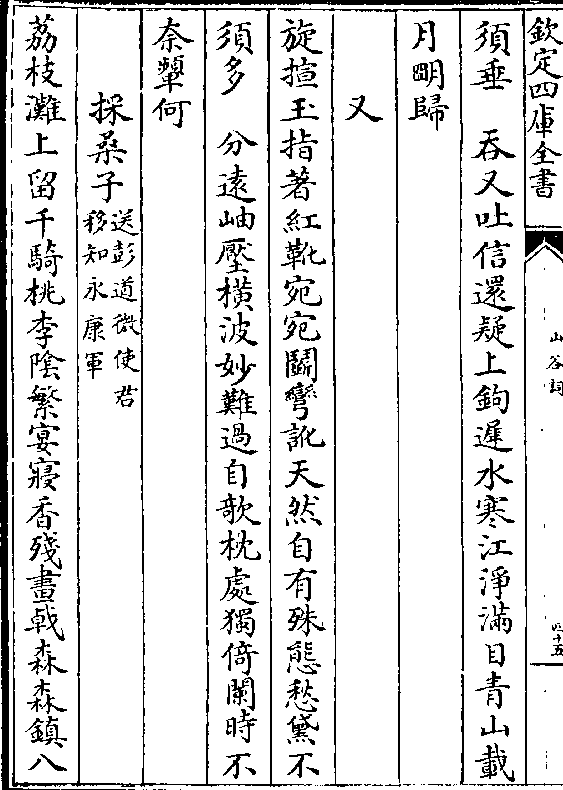 欽定四庫全書
山谷詞
須垂　吞又吐信還疑上鉤遲水寒江淨滿目青山載
月明歸
又
旋揎玉指著紅靴宛宛鬭彎訛天然自有殊態愁黛不
須多　分遠岫壓橫波妙難過自欹枕處獨倚闌時不
奈顰何
採桑子
送彭道微使君
移知永康軍
荔枝灘上留千騎桃李陰繁宴寢香殘畫戟森森鎮八